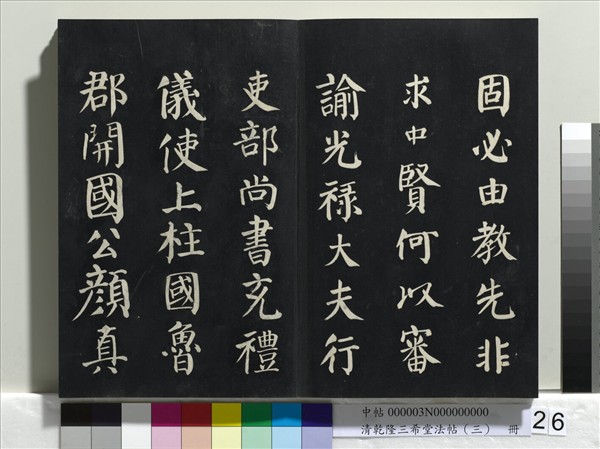 固必由教先非
求中賢何以審
諭光祿大夫行
吏部尚書充禮
儀使上柱國魯
郡開國公顏真
中帖 000003N000000000
清乾隆三希堂法帖（三） 冊
26